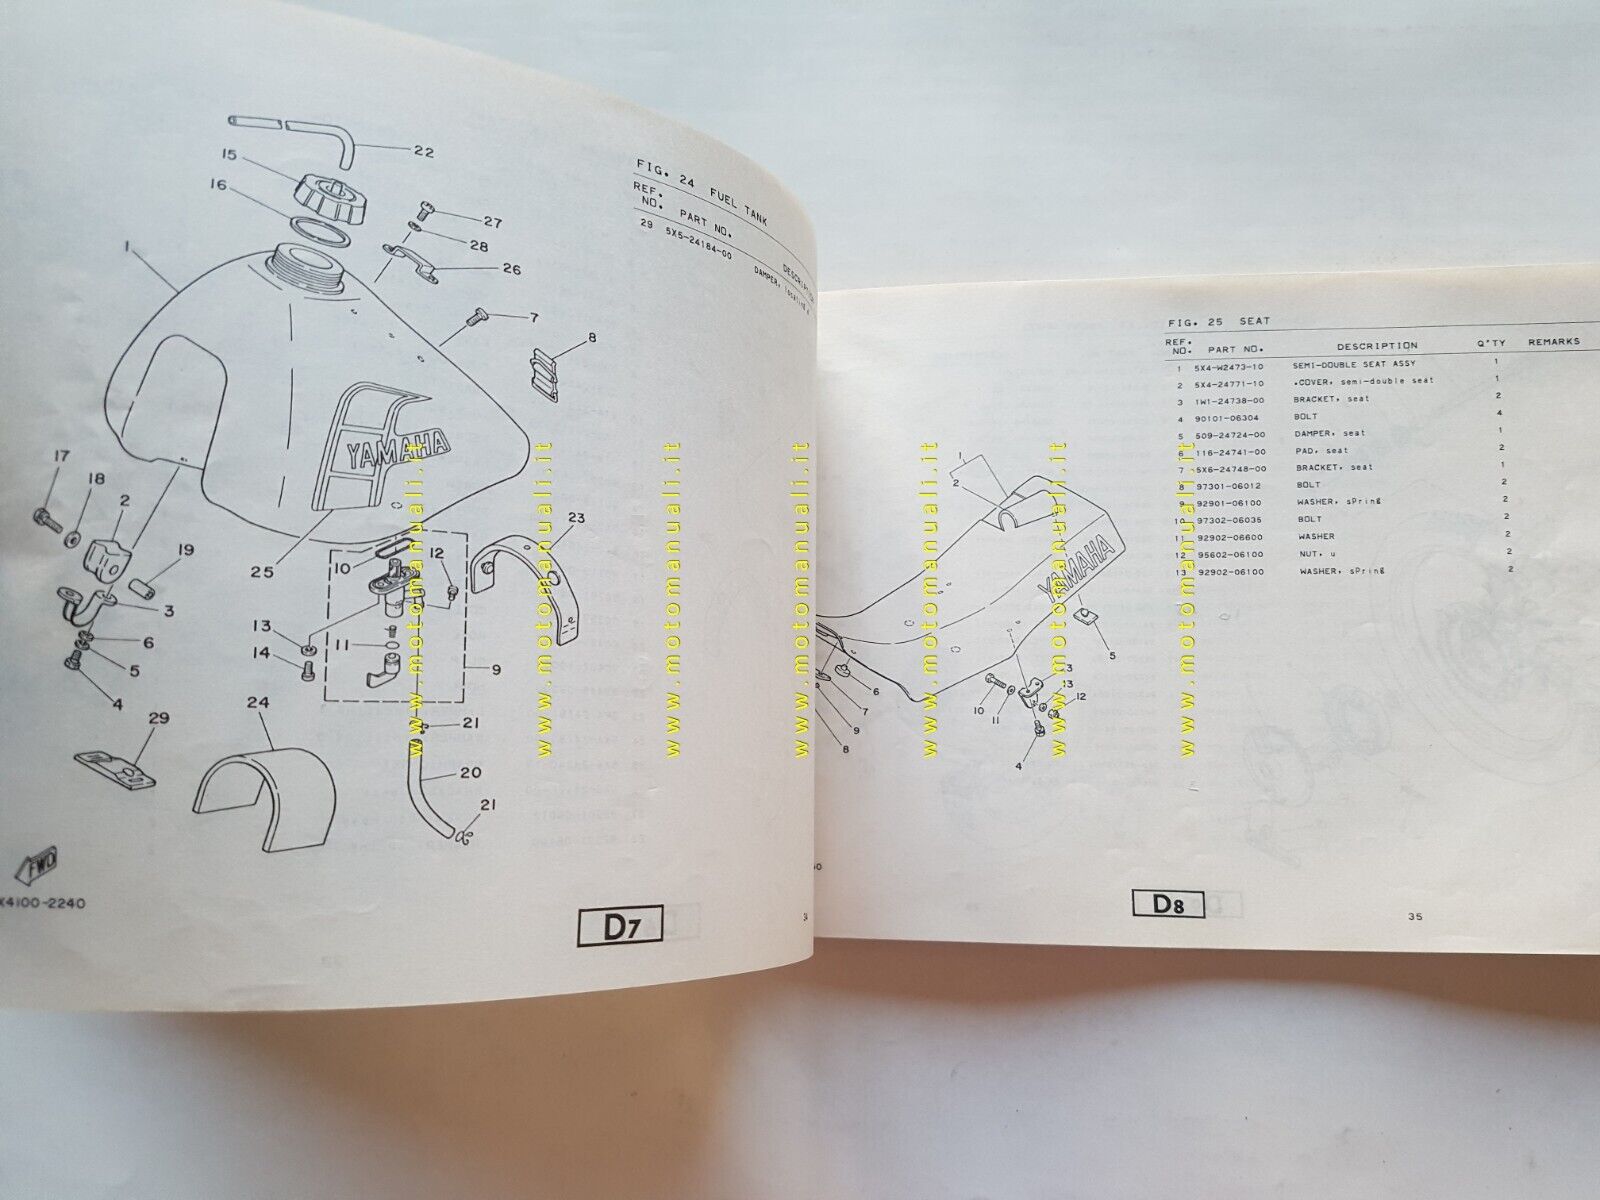 22
15
16
27
28
1
26
7
8
YAMAHA
17
18
2
19
25
10
12
23
3
13
11
6
14
9
5
4
21
24
29
20
21
FWD
X4100-2240
FIG. 24 FUEL TANK
REF. NO. PART NO. DESCRIPTION
29 5X5-24184-00 DAMPER, locating
D7
34
FIG. 25 SEAT
REF. NO. PART NO. DESCRIPTION Q'TY REMARKS
1 5X4-W2473-10 SEMI-DOUBLE SEAT ASSY 1
2 5X4-24771-10 .COVER, semi-double seat 1
3 1W1-24738-00 BRACKET, seat 2
4 90101-06304 BOLT 4
5 509-24724-00 DAMPER, seat 1
6 116-24741-00 PAD, seat 2
7 5X6-24748-00 BRACKET, seat 1
8 97301-06012 BOLT 2
9 92901-06100 WASHER, spring 2
10 97302-06035 BOLT 2
11 92902-06600 WASHER 2
12 95602-06100 NUT, u 2
13 92902-06100 WASHER, spring 2
1
2
YAMAHA
5
3
6
10
11
13
12
7
9
8
4
D8
35
www.motomanuali.it
www.motomanuali.it
www.motomanuali.it
www.motomanuali.it
www.motomanuali.it
www.motomanuali.it
www.motomanuali.it